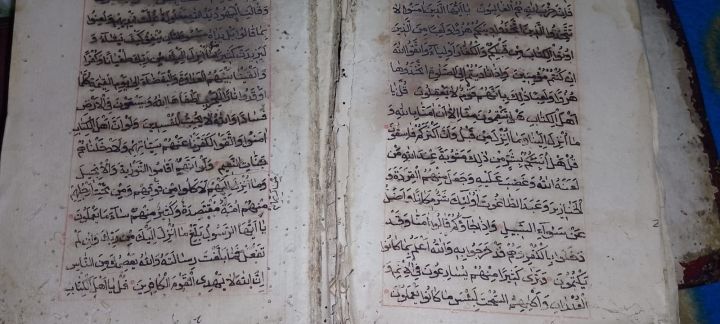 فإن حزب الله هم الغالبون يا أيها الذين آمنوا لا
تتخذوا الذين اتخذوا دينكم هزوا ولعبا من الذين
أوتوا الكتاب من قبلكم والكفار أولياء واتقوا الله
إن كنتم مؤمنين وإذا ناديتم إلى الصلوة اتخذوها
هزوا ولعبا ذلك بأنهم قوم لا يعقلون قل يا
أهل الكتاب هل تنقمون منا إلا أن آمنا بالله و
ما أنزل إلينا وما أنزل من قبل وأن أكثركم فاسقون
قل هل أنبئكم بشر من ذلك مثوبة عند الله من
لعنه الله وغضب عليه وجعل منهم القردة و
الخنازير وعبد الطاغوت أولئك شر مكانا وأضل
عن سواء السبيل وإذا جاؤكم قالوا آمنا وقد
دخلوا بالكفر وهم قد خرجوا به والله أعلم بما كانوا
يكتمون وترى كثيرا منهم يسارعون في الإثم و
العدوان وأكلهم السحت لبئس ما كانوا يعملون
وقالت اليهود يد الله مغلولة ولعنوا
بما قالوا بل يداه مبسوطتان ينفق كيف يشاء و
ليزيدن كثيرا منهم ما أنزل إليك من ربك طغيانا وكفرا
وألقينا بينهم العداوة والبغضاء إلى يوم القيمة كلما
أوقدوا نارا للحرب أطفأها الله ويسعون في الأرض
فسادا والله لا يحب المفسدين ولو أن أهل الكتاب
آمنوا واتقوا لكفرنا عنهم سيئاتهم ولأدخلناهم
جنات النعيم ولو أنهم أقاموا التورية والإنجيل
وما أنزل إليهم لأكلوا من فوقهم ومن تحت أرجلهم
منهم أمة مقتصدة وكثير منهم ساء ما يعملون
يا أيها الرسول بلغ ما أنزل إليك من ربك وإن لم
تفعل فما بلغت رسالته والله يعصمك من الناس
إن الله لا يهدي القوم الكافرين قل يا أهل الكتاب